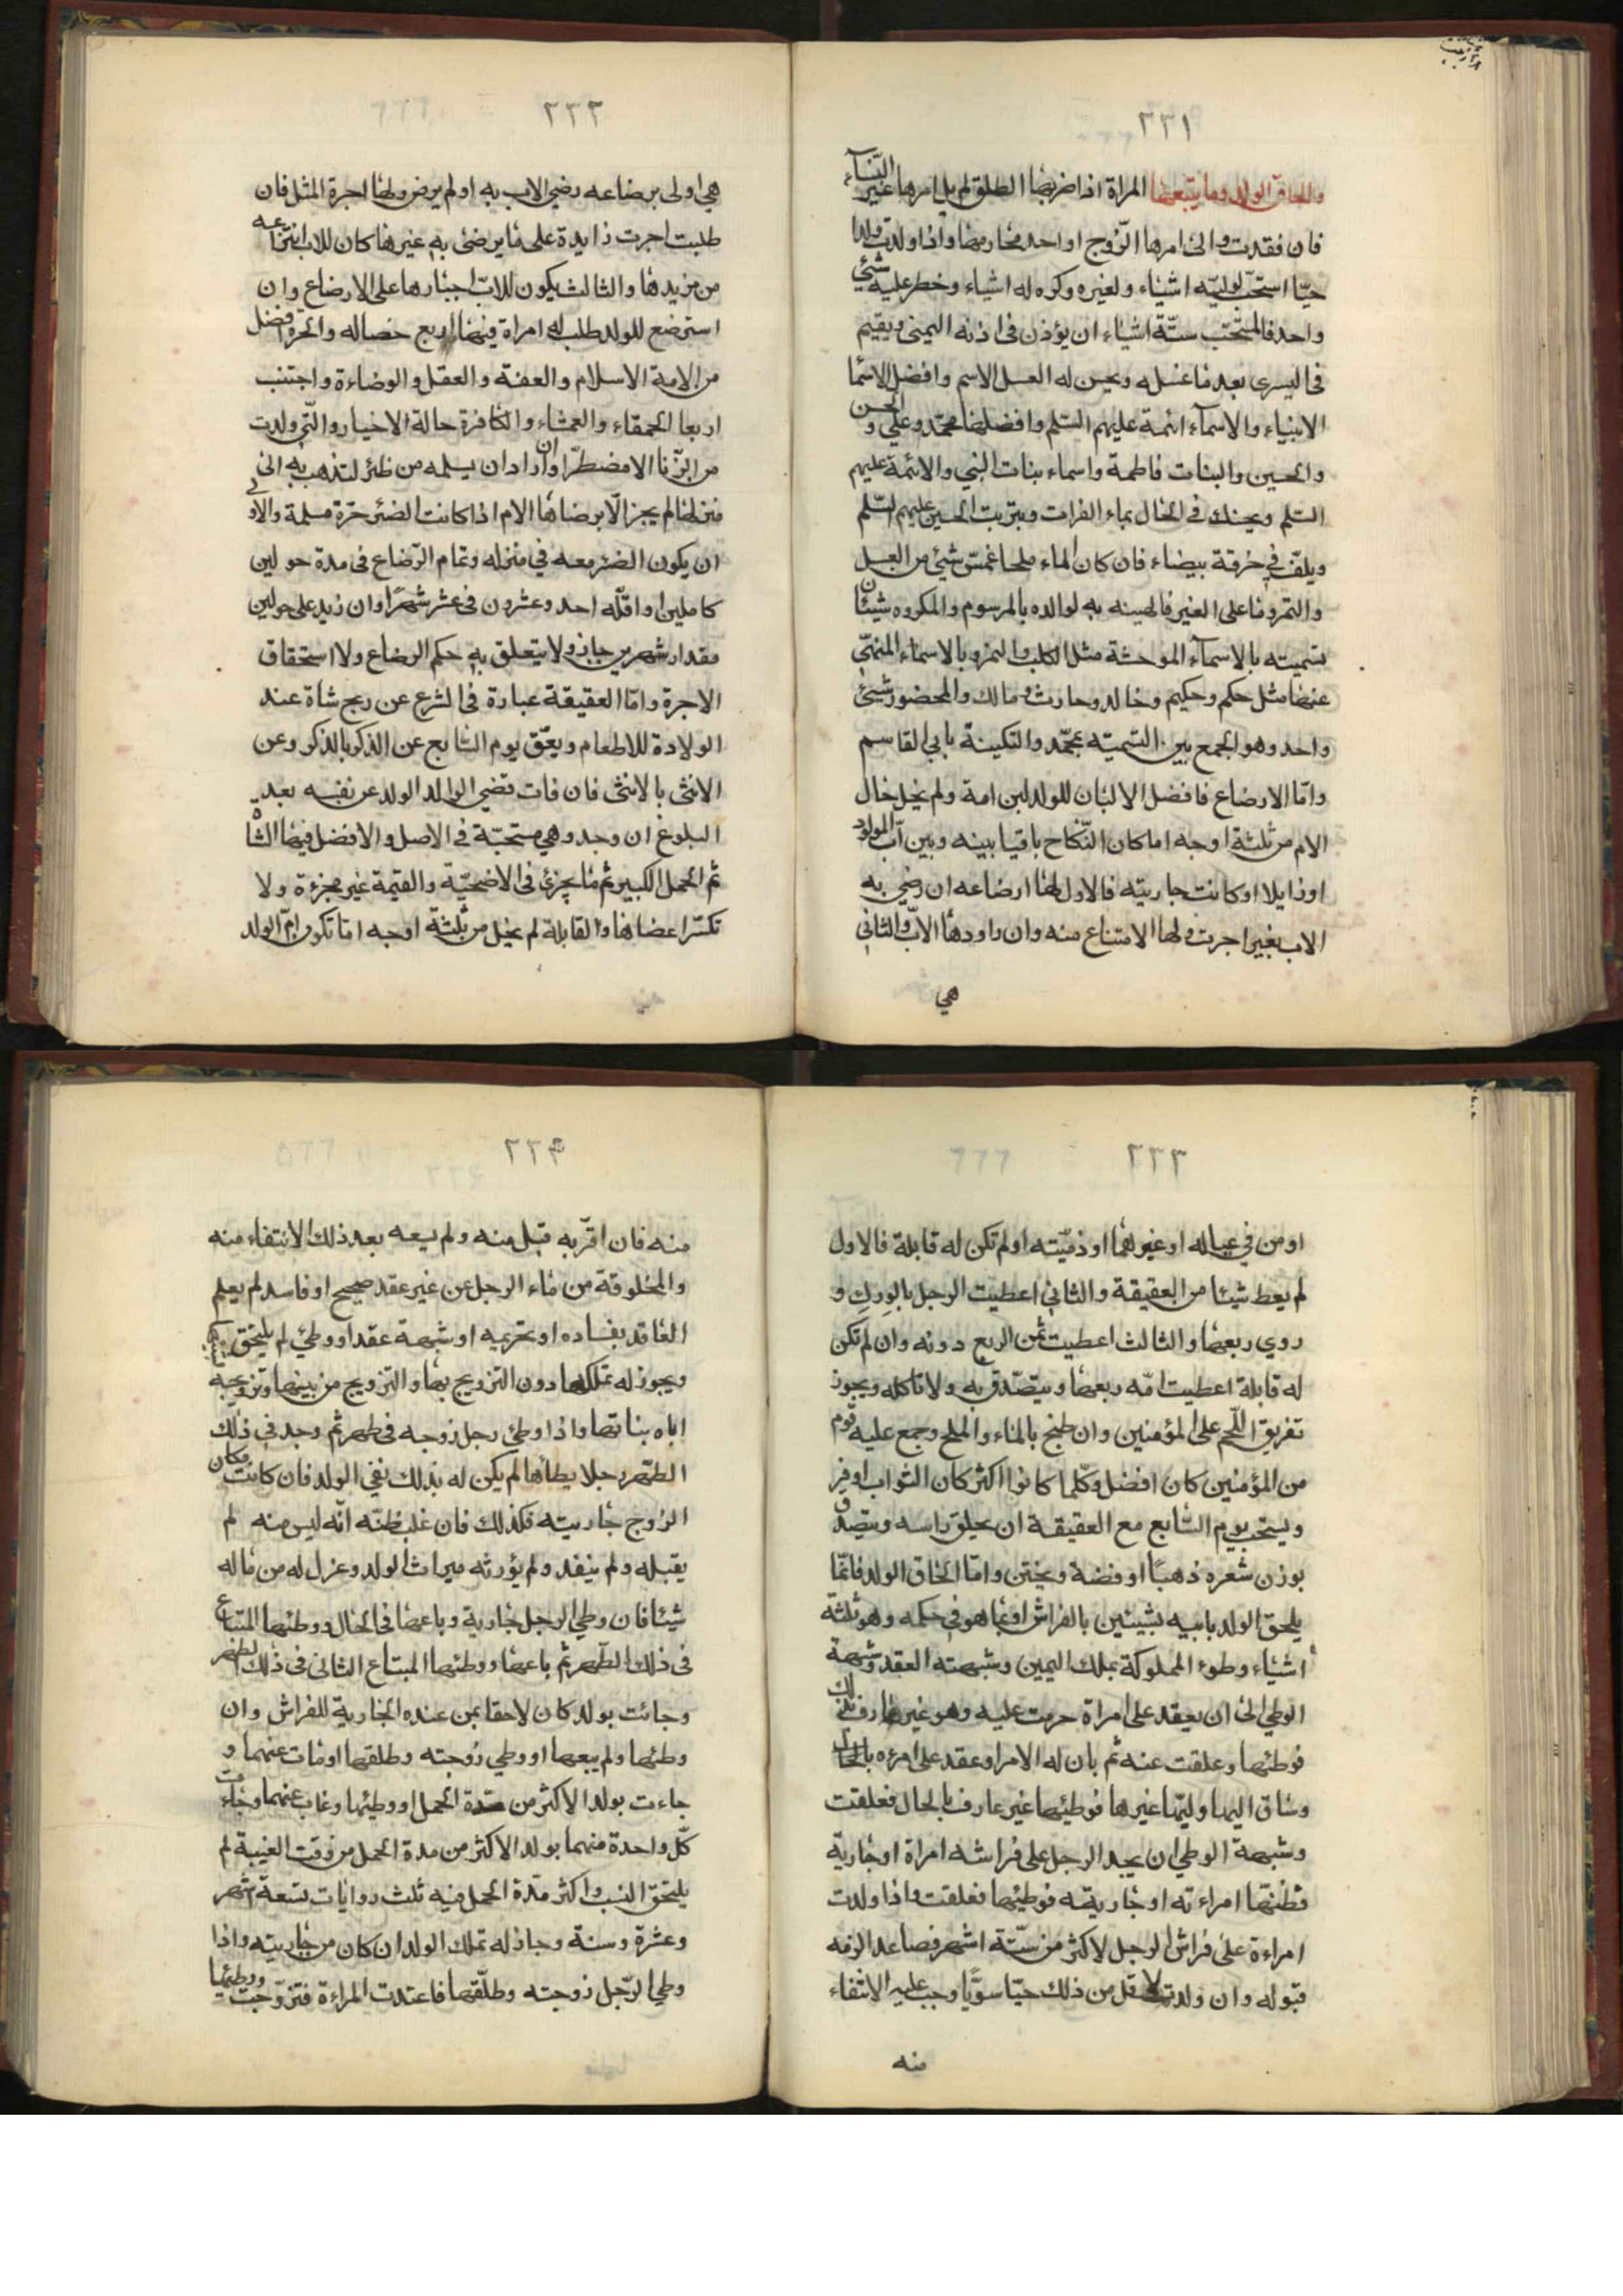 ٢٣١
والحاق الولد وما يتبعها المراة اذا ضربها الطلق لم يل امرها غير النسآء
فان فقدت والى امرها الزّوج او احد محارمها واذا ولدت ولدا
حيّا استحبّ لوليّه اشياء ولغيره وكره له اشياء وخطر عليه شئ
واحد فالمستحب ستّة اشياء ان يؤذن فى اذنه اليمنى ويقيم
فى اليسرى بعد ما غسله ويحسن له الاسم وافضل الاسما
الانبياء والاسمآء ائمة عليهم السّلم وافضلها محمّد وعلي والحسن
والحسين والبنات فاطمة واسماء بنات النبي والائمة عليهم
السّلم ويحنك في الحال بماء الفرات وبتربت الحسين عليهم السّلم
ويلفّ في خرقة بيضاء فان كان الماء ملحا غمسّ شئ من العسل
والتمر وما على الغير فالهينه به لوالده بالمرسوم والمكروه شيئان
تسميته بالاسمآء الموحشة مثل الكلب والنمر وبالاسماء المنهّي
عنها مثل حكم وحكيم وخالد وحارث ومالك والمحضور شئ
واحد وهو الجمع بين التسميته بمحمّد والتكينة بابي القاسم
وامّا الارضاع فافضل الالبان للولد لبن امة ولم يخل حال
الام من ثلثة اوجه اما كان النّكاح باقيا بينه وبين آب المولود
او زايلا او كانت جاريته فالاول لها ارضاعه ان رضي به
الاب بغير اجرت ولها الامتناع منه وان راودها الابّ والثانى
هي
٢٣٢
هي اولى برضاعه رضي الاب به اولم يرض ولها اجرة المثل فان
طلبت اجرت زايدة على ما يرضى به غيرها كان للاب انتزاعه
من مزيدها والثالث يكون للابّ اجبارها على الارضاع وان
استرضع للولد طلب له امراة فيها اربع خصاله والحرة افضل
من الامة الاسلام والعفة والعقل والوضاءة واجتنب
اربعا الحمقاء والعمشاء والكافرة حالة الاخيار والتّي ولدت
من الزّنا الا مضطرّا وان اراد ان يسلمه من ظئر لتذهب به الى
منزلها لم يجز الّا برضاها الام اذا كانت الضئر حرّة مسلمة والاولى
ان يكون الضئر معه في منزله وتمام الرّضاع فى مدة حولين
كاملين واقلّه احد وعشرون فى عشر شهرًا وان زيد على حولين
مقدار شهرين جاز ولا يتعلق به حكم الرضاع ولا استحقاق
الاجرة وامّا العقيقة عبارة فى الشرع عن ربح شاة عند
الولادة للاطعام ويعّق يوم السّابع عن الذكر بالذكر وعن
الانثى بالانثى فان فات قضي الوالد الولد عن نفسه بعد
البلوغ ان وجد وهي مستحبّة فى الاصل والافضل فيها الشاة
ثم الحمل الكبير ثم ما يجزئ فى الاضحيّة والقيمة غير مجزءة ولا
تكسّر اعضاها والقابلة لم يخل من ثلثة اوجه امّا تكون امّ الولد
٢٣٣
او من في عياله او غيرهما او ذميّته اولم تكن له قابلة فالاول
لم يعط شيئا من العقيقة والثاني اعطيت الرجل بالورك و
روي ربعها والثالث اعطيت ثمن الربع دونه وان لم تكن
له قابلة اعطيت امّه ربعها ويتصّدق به ولا تاكله ويجوز
تفريق اللّحم على المؤمنين وان طبخ بالماء والملح وجمع عليه قوم
من المؤمنين كان افضل وكلّما كانوا اكثر كان الثواب اوفر
ويستحب يوم السّابع مع العقيقة ان يحلق راسه ويتصّدق
بوزن شعره ذهبًا او فضة ويختن وامّا الحاق الولد فانّما
يلحق الولد بابيه بشيئين بالفراش او بما هو في حكمه وهو ثلثة
اشياء وطوء المملوكة بملك اليمين وشبهته العقد وشبهة
الوطي الى ان يعقد على امراة حرمت عليه وهو غير عارف بذلك
فوطئها وعلقت عنه ثم بان له الامر او عقد على امرءه بالحال
وساق اليها وليّها غيرها فوطيئها غير عارف بالحال فعلقت
وشبهة الوطي ان يجد الرجل على فراشه امراة او جارية
فظنّها امراءته او جاريته فوطيئها فعلقت واذا ولدت
امراءة على فراش الرجل لاكثر من ستّة اشهر فصاعدا لزمه
قبوله وان ولدت لاقل من ذلك حيّا سويًّا وجب عليه الانتفاء
منه
٢٣٤
منه فان اقرّ به قبل منه ولم يسعه بعد ذلك الانتفاء منه
والمخلوقة من ماء الرجل عن غير عقد صحيح او فاسد لم يعلم
العاقد بفساده او تحريمه او شبهة عقد او وطئ لم يلتحق به
ويجوز له تملكها دون التزويج بها والتزويج من بينها وتزويجه
اياه بناتها واذا وطئ رجل زوجه فى طهر ثم وجد في ذلك
الطّهر رجلا يطأها لم يكن له بذلك نفي الولد فان كانت مكان
الزوج جاريته فكذلك فان غلب ظنّه انّه ليس منه لم
يقبله ولم ينفد ولم يؤرثه ميراث الولد وعزل له من ماله
شيئا فان وطي الرجل جارية وباعها فى الحال ووطئها المتباع
فى ذلك الطّهر ثم باعها ووطئها المبتاع الثانى فى ذلك الطهر
وجائت بولد كان لاحقا بمن عنده الجارية للفراش وان
وطئها ولم يبعها او وطي زوجته وطلقها او مات عنهما و
جاءت بولد الاكثر من مدة الحمل او وطيئها وغاب عنهما وجاءت
كلّ واحدة منهما بولد الاكثر من مدة الحمل من وقت الغيبة لم
يلتحق النسب واكثر مدّة الحمل فيه ثلث روايات تسعة اشهر
وعشرة وسنة وجاز له تملك الولد ان كان من جاريته واذا
وطي الرّجل زوجته وطلّقها فاعتدت المراءة فتزوّجت ووطيئها